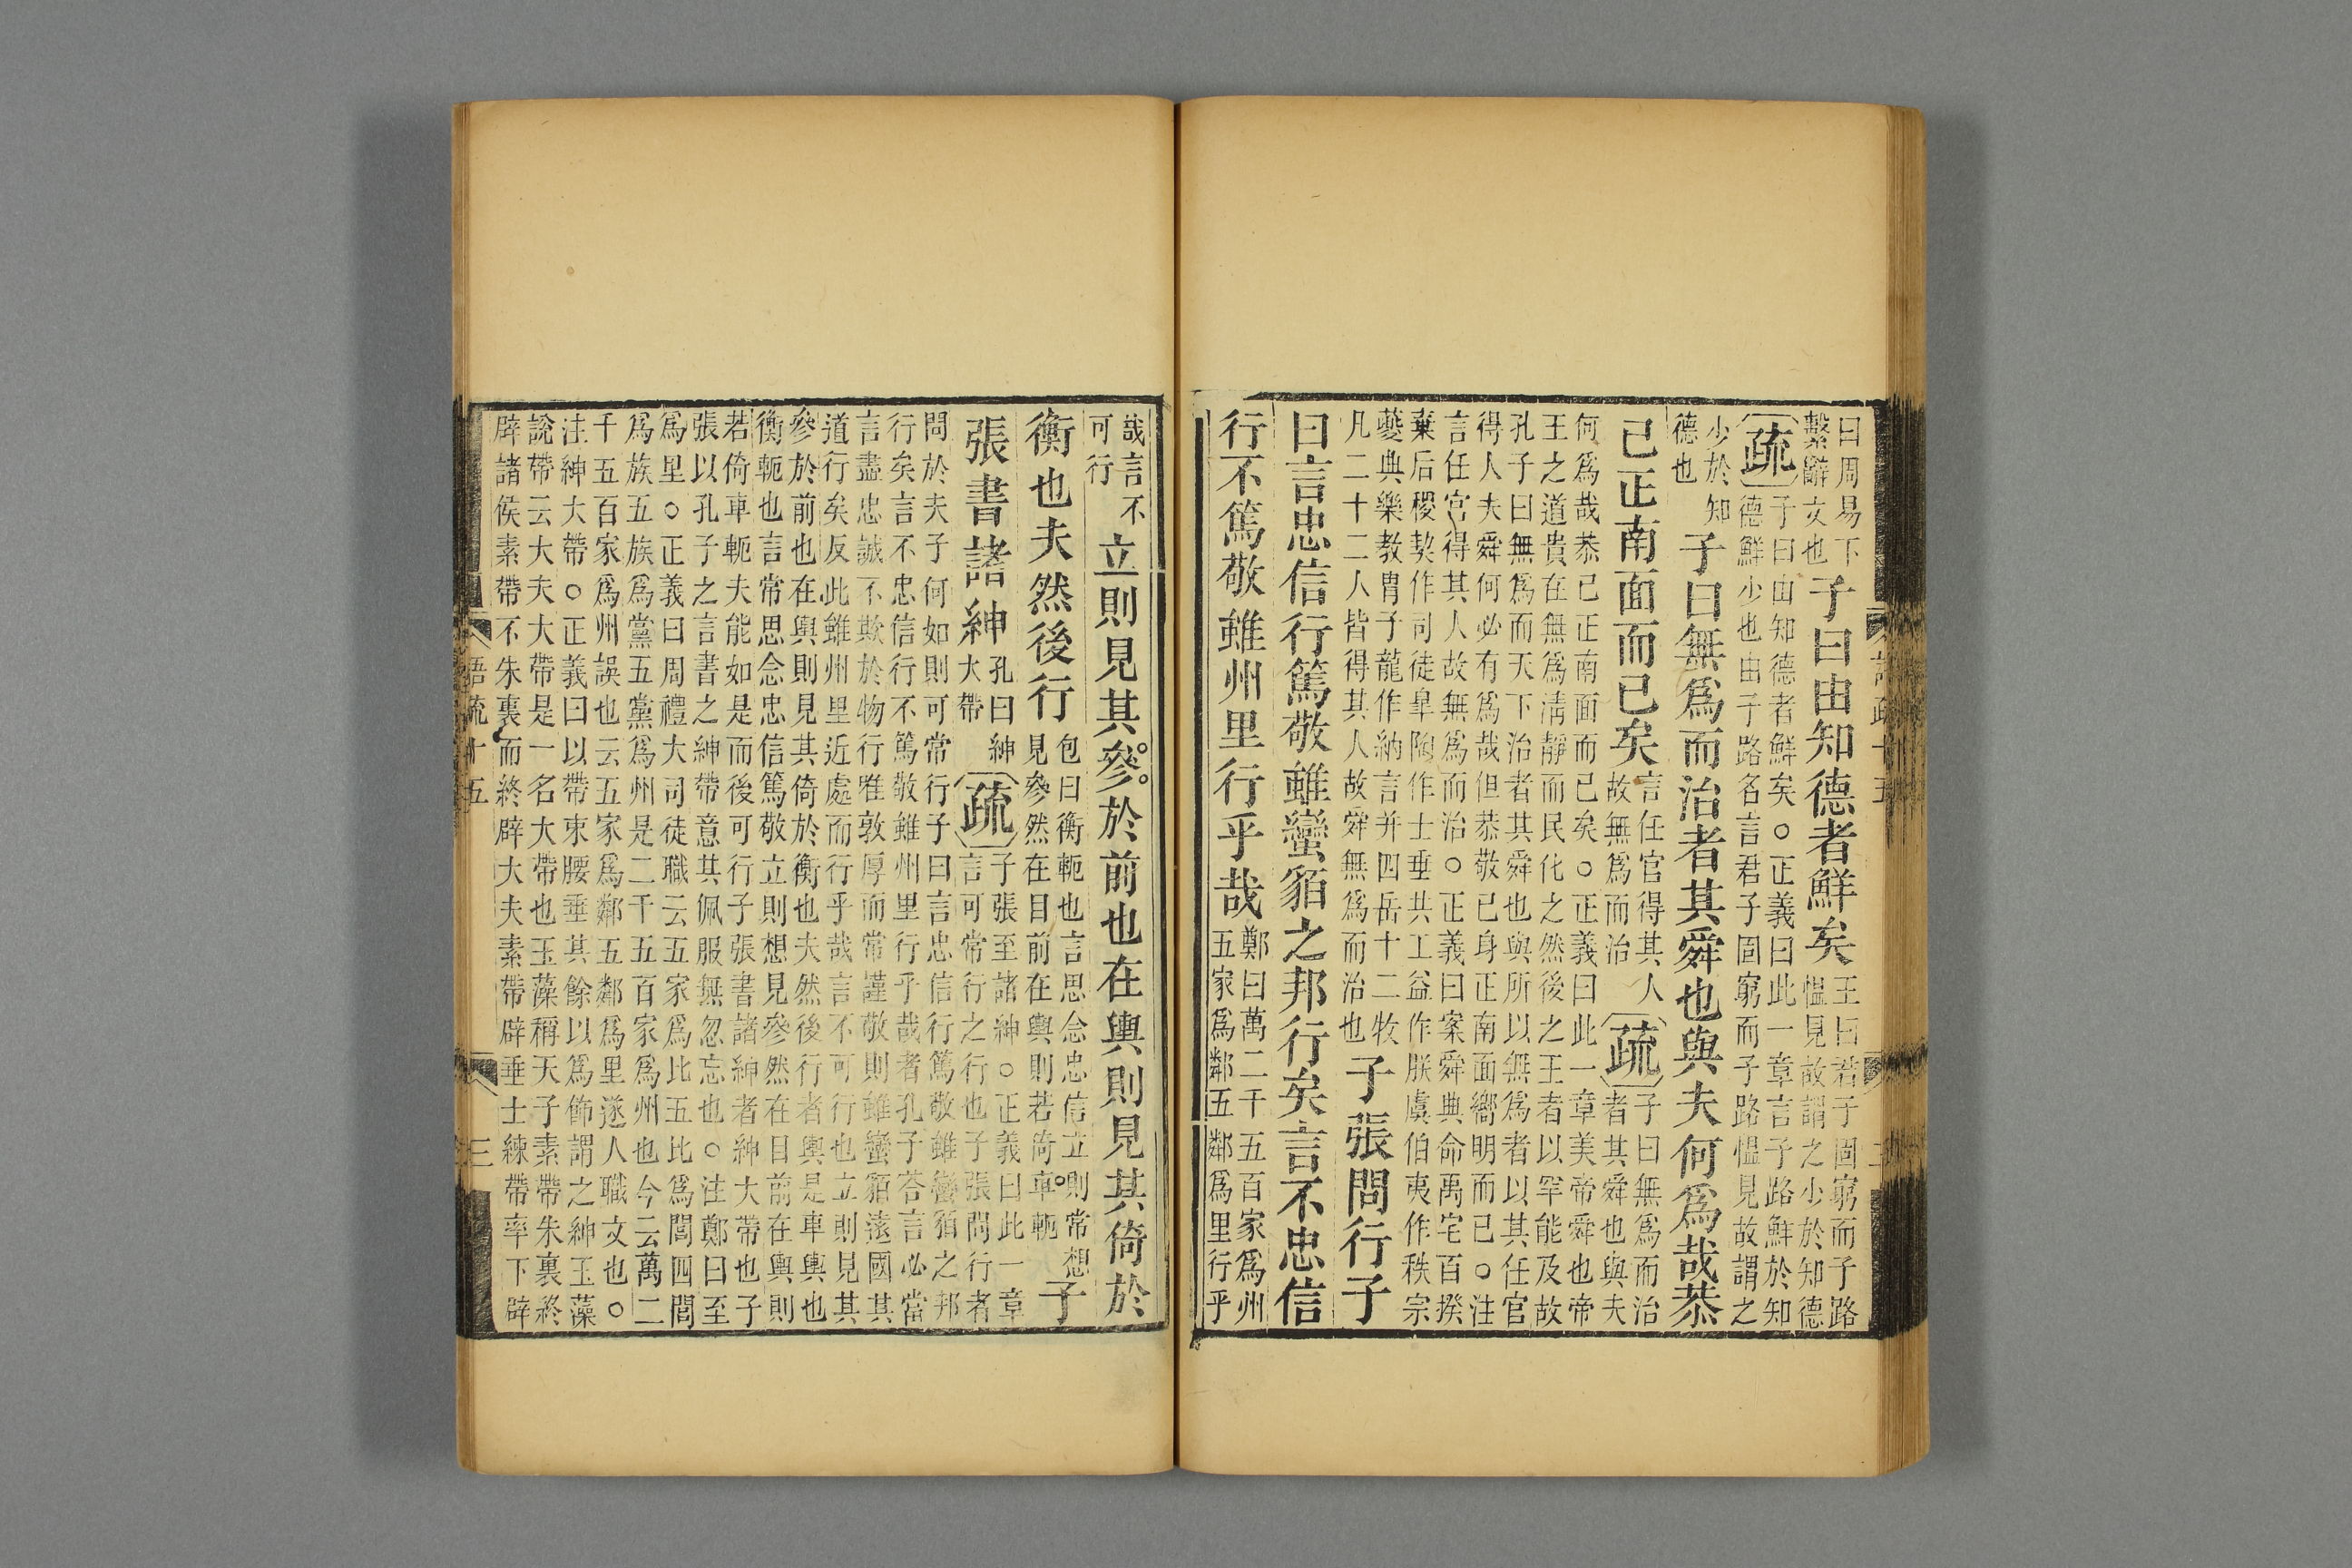 曰周易下
繫辭文也
子曰由知德者鮮矣
王曰君子固窮而子路
慍見故謂之少於知德
疏
子曰由知德者鮮矣○正義曰此一章言子路鮮於知
德鮮少也由子路名言君子固窮而子路慍見故謂之
少於知
德也
子曰無爲而治者其舜也與夫何爲哉恭
已正南面而已矣
言任官得其人
故無爲而治
疏
子曰無爲而治
者其舜也與夫
何爲哉恭已正南面而已矣○正義曰此一章美帝舜也帝
王之道貴在無爲清靜而民化之然後之王者以罕能及故
孔子曰無爲而天下治者其舜也與所以無爲者以其任官
得人夫舜何必有爲哉但恭敬已身正南面嚮明而已○注
言任官得其人故無爲而治○正義曰案舜典命禹宅百揆
棄后稷契作司徒皐陶作士垂共工益作朕虞伯夷作秩宗
夔典樂教胄子龍作納言并四岳十二牧
凡二十二人皆得其人故舜無爲而治也
子張問行子
曰言忠信行篤敬雖蠻貊之邦行矣言不忠信
行不篤敬雖州里行乎哉
鄭曰萬二千五百家爲州
五家爲鄰五鄰爲里行乎
哉言不
可行
立則見其參於前也在輿則見其倚於
衡也夫然後行
包曰衡軛也言思念忠信立則常想
見參然在目前在輿則若倚車軛
子
張書諸紳
孔曰紳
大帶
疏
子張至諸紳○正義曰此一章
言可常行之行也子張問行者
問於夫子何如則可常行子曰言忠信行篤敬雖蠻貊之邦
行矣言不忠信行不篤敬雖州里行乎哉者孔子荅言必當
言盡忠誠不欺於物行雅敦厚而常謹敬則雖蠻貊遠國其
道行矣反此雖州里近處而行乎哉言不可行也立則見其
參於前也在輿則見其倚於衡也夫然後行者輿是車輿也
衡軛也言常思念忠信篤敬立則想見參然在目前在輿則
若倚車軛夫能如是而後可行子張書諸紳者紳大帶也子
張以孔子之言書之紳帶意其佩服無忽忘也○注鄭曰至
爲里○正義曰周禮大司徒職云五家爲比五比爲閭四閭
爲族五族爲黨五黨爲州是二千五百家爲州也今云萬二
千五百家爲州誤也云五家爲鄰五鄰爲里遂人職文也○
注紳大帶○正義曰以帶束腰垂其餘以爲飾謂之紳玉藻
說帶云大夫大帶是一名大帶也玉藻稱天子素帶朱裏終
辟諸侯素帶不朱裏而終辟大夫素帶辟垂士練帶率下辟
語疏十五
三